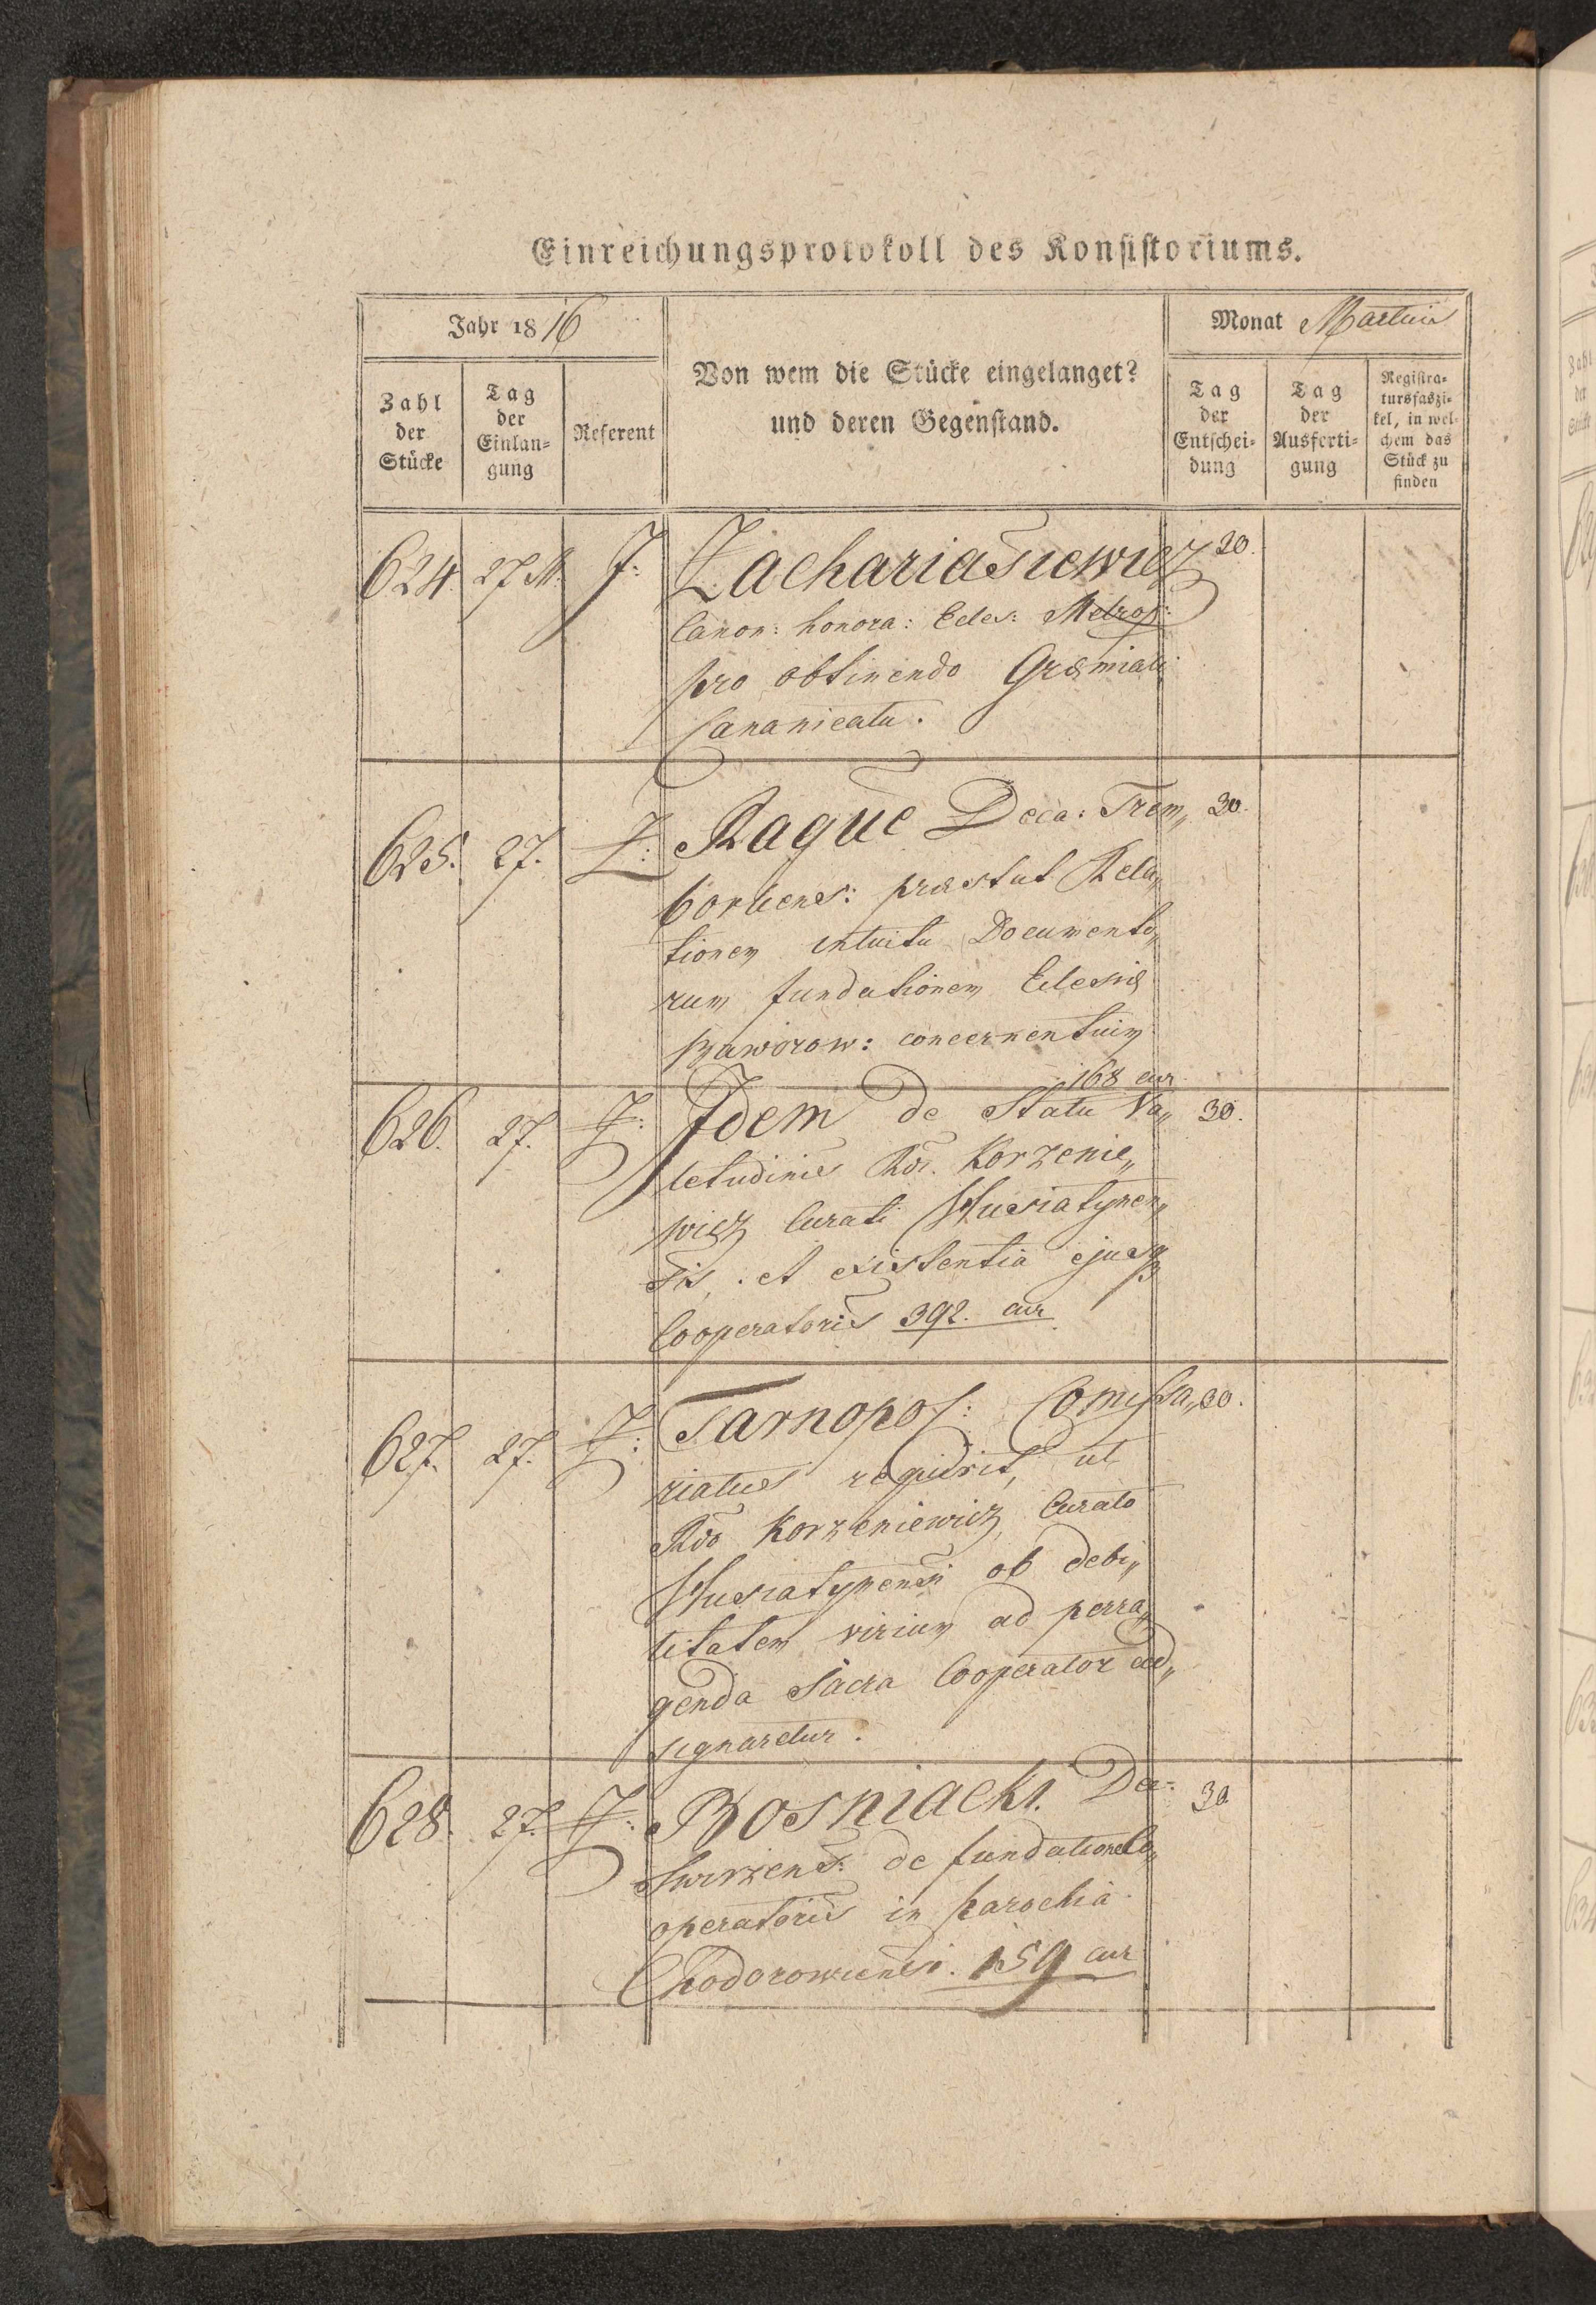 Einreichungsprotokoll des Konsistoriums.
Jahr 1816
Monat Martius
Zahl der Stücke
Tag der Einlangung
Referent
Von wem die Stücke eingelanget?
und deren Gegenstand.
Tag der Entscheidung
Tag der Ausfertigung
Registratursfaszikel, in welchem das Stück zu finden
624. 27 M. J: Zachariasiewicz 30.
Canon: honora: Ecles: Metrop:
pro obtinendo Græmiali
Cananicatu.
625. 27. Raque Deca: Trem„ 30.
bovliens: præstat Rela„
tionem intuitu Documento„
rum fundationem Eclesiæ
Baworow: concernentium
168 cur
626. 27. Idem de Statu Va„ 30.
letudinis Rdi. Korzenie„
wicz Curati Husiatynen„
sis, et existentia ejusq
Cooperatoris 392. cur
627. 27. Tarnopol: Comissa„ 30.
riatus requirit, ut
Rdo Korzeniewicz Curato
Husiatynensi ob debi„
litatem virium ad perra„
genda Sacra Cooperator ad„
signaretur.
628. 27. Bosniacki Dec: 30
Swirzens: de fundatione Co„
operatoris in Parochia
Chodorowiensi. 159 cur